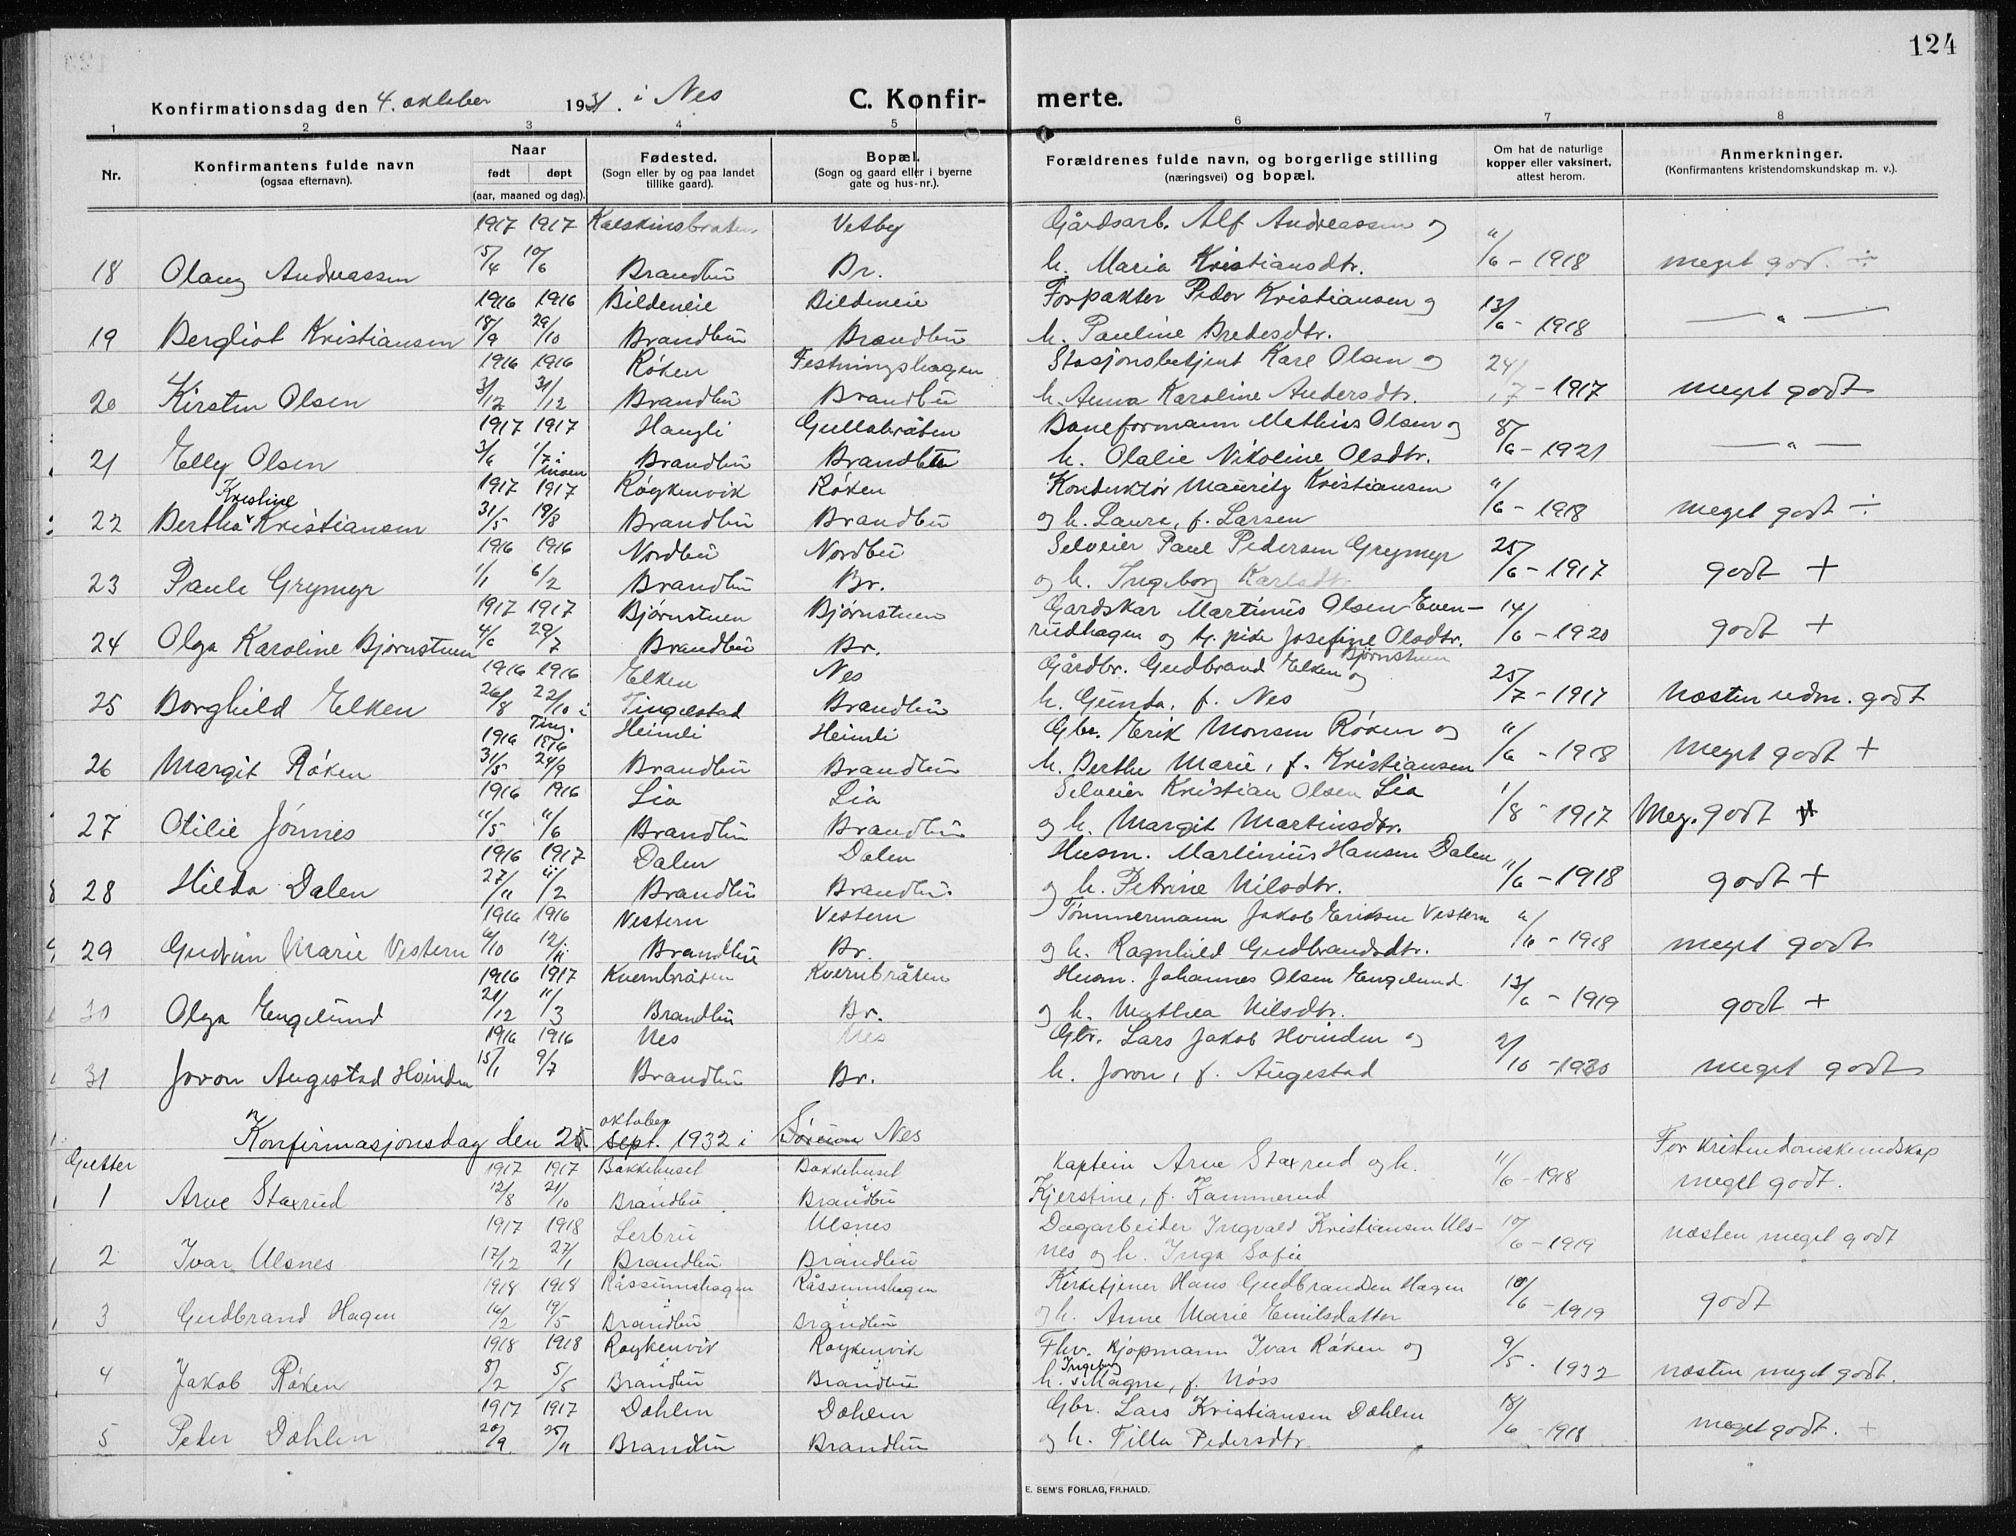 124
Konfirmationsdag den 4. oktober 1931. i Nes C. Konfirmerte.
1 2 3 4 5 6 7 8
Nr. Konfirmantens fulde navn (ogsaa efternavn). Naar født døpt (aar, maaned og dag). Fødested. (Sogn eller by og paa landet tillike gaard). Bopæl. (Sogn og gaard eller i byerne gate og hus-nr.). Forældrenes fulde navn, og borgerlige stilling (næringsvei) og bopæl. Om hat de naturlige kopper eller vaksinert, attest herom. Anmerkninger. (Konfirmantens kristendomskundskap m. v.).
1917 1917 Vetby Gårdsarb. Alf Andreassen og
18 Olaug Andreassen 15/4 10/6 Brandbu Br. h. Maria Kristiansdtr. 11/6 - 1918 meget god. ÷
1916 1916 Bildeneie Bildeneie Forpakter Peder Kristiansen og
19 Bergliot Kristiansen 18/9 29/10 Brandbu Brandbu h. Pauline Bredesdtr. 13/6 - 1918 — " —
1916 1916 Røken Festningshagen Stasjonsbetjent Karl Olsen og
20 Kirsten Olsen 3/12 31/12 Brandbu Brandbu h. Anna Karoline Andersdtr. 24/7 - 1917 meget godt
1917 1917 Haugli Gullabråten Baneformann Mathius Olsen og
21 Elly Olsen 3/6 1/7 i Moen Brandbu Brandbu h. Olalie Nikoline Olsdtr. 8/6 - 1921 — " —
1917 1917 Røykenvik Røken Konduktør Mauritz Kristiansen
22 Bertha Kristine Kristiansen 31/5 19/8 Brandbu Brandbu og h. Laura, f. Larsen 11/6 - 1918 meget godt ÷
1916 1916 Nordbu Nordbu Selveier Paul Pedersen Grymyr
23 Paula Grymyr 1/1 6/2 Brandbu Br. og h. Ingeborg Karlsdtr. 25/6 - 1917 godt +
1917 1917 Bjørnstuen Bjørnstuen Gardskar Martinus Olsen Even-
24 Olga Karoline Bjørnstuen 4/6 29/7 Brandbu Br. rudhagen og tj. pike Josefine Olsdtr. Bjørnstuen 14/6 - 1920 godt +
1916 1916 Elken Nes Gårdbr. Gudbrand Elken og
25 Borghild Elken 26/8 22/10 i Ting. Tingelstad Brandbu h. Gunda, f. Nes 25/7 - 1917 Næsten udm. godt
1916 1916 Heimli Heimli Gbr. Erik Monsen Røken og
26 Margit Røken 31/5 24/9 Brandbu Brandbu h. Berthe Marie, f. Kristiansen 11/6 - 1918 Meget godt +
1916 1916 Lia Lia Selveier Kristian Olsen Lia
27 Otilie Jønnes 11/5 11/6 Brandbu Brandbu og h. Margit Martinsdtr. 1/8 - 1917 Meg. godt +
1916 1917 Dalen Dalen Husm. Martinius Hansen Dalen
28 Hilda Dalen 27/11 11/2 Brandbu Brandbu. og h. Petrine Nilsdtr. 11/6 - 1918 godt +
1916 1916 Vestern Vestern Tømmermann Jakob Eriksen Vestern
29 Gudrun Marie Vestern 6/10 12/11 Brandbu Br. og h. Ragnhild Gudbrandsdtr. 11/6 - 1918 meget godt
1916 1917 Kvernbråten Kvernbråten Husm. Johannes Olsen Engelund
30 Olga Engelund 21/12 11/3 Brandbu Br. og h. Mathea Nilsdtr. 13/6 - 1919 godt +
1916 1916 Nes Nes Gbr. Lars Jakob Hvinden og
31 Joron Augestad Hvinden 15/1 9/7 Brandbu Br. h. Joron, f. Augestad 2/10 - 1930 meget godt
Konfirmasjonsdag den 2. oktober sept. 1932 i Sørum Nes
Gutter For kristendomskundskap
1917 1917 Bakkehuset Bakkehuset Kaptein Arve Staxrud og h.
1 Arve Staxrud 12/8 21/10 Brandbu Brandbu Kjerstine, f. Kammerud 11/6 - 1918 meget godt.
1917 1918 Lerbru Ulsnes Dagarbeider Ingvald Kristiansen Uls-
2 Ivar Ulsnes 17/12 27/1 Brandbu Brandbu nes og h. Inga Sofie 10/6 - 1919 næsten meget godt
1918 1918 Råssumshagen Råssumshagen Kirketjener Hans Gudbrandsen Hagen
3 Gudbrand Hagen 16/2 19/5 i Brandbu i Brandbu og h. Anne Marie Emilsdatter 10/6 - 1919 godt
1918 1918 Røykenvik Røykenvik Fhv. kjøpmann Ivar Røken og
4 Jakob Røken 8/2 5/5 i Brandbu i Brandbu h. Ingeborg Magna, f. Noss 9/5 - 1932 næsten meget godt.
1917 1917 Dæhlen Dæhlen Gbr. Lars Kristiansen Dæhlen
5 Peder Dæhlen 20/9 25/11 Brandbu Brandbu og h. Tilla Pedersdtr. 18/6 - 1918 meget godt. +
E. SEM'S FORLAG, FR.HALD.